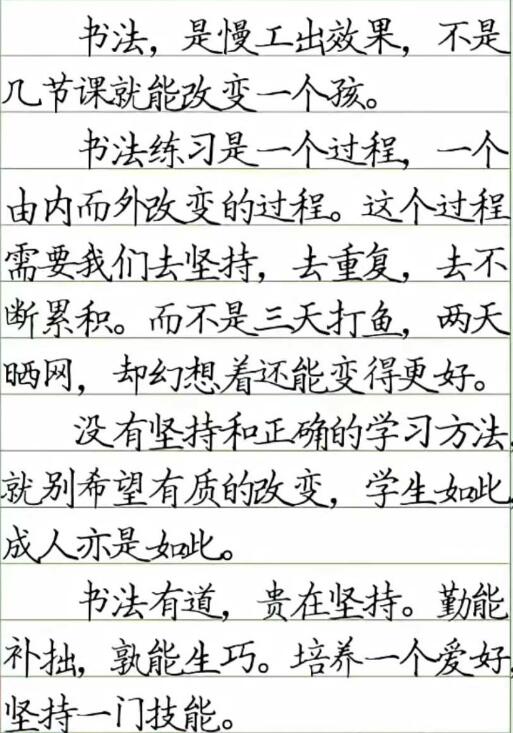 书法，是慢工出效果，不是
几节课就能改变一个孩。
书法练习是一个过程，一个
由内而外改变的过程。这个过程
需要我们去坚持，去重复，去不
断累积。而不是三天打鱼，两天
晒网，却幻想着还能变得更好。
没有坚持和正确的学习方法，
就别希望有质的改变，学生如此，
成人亦是如此。
书法有道，贵在坚持。勤能
补拙，孰能生巧。培养一个爱好，
坚持一门技能。